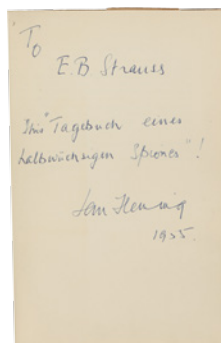 To
E.B Strauss
This "Tagebuch eines
halbwüchsigen Spiones" !
Ian Fleming
1955.